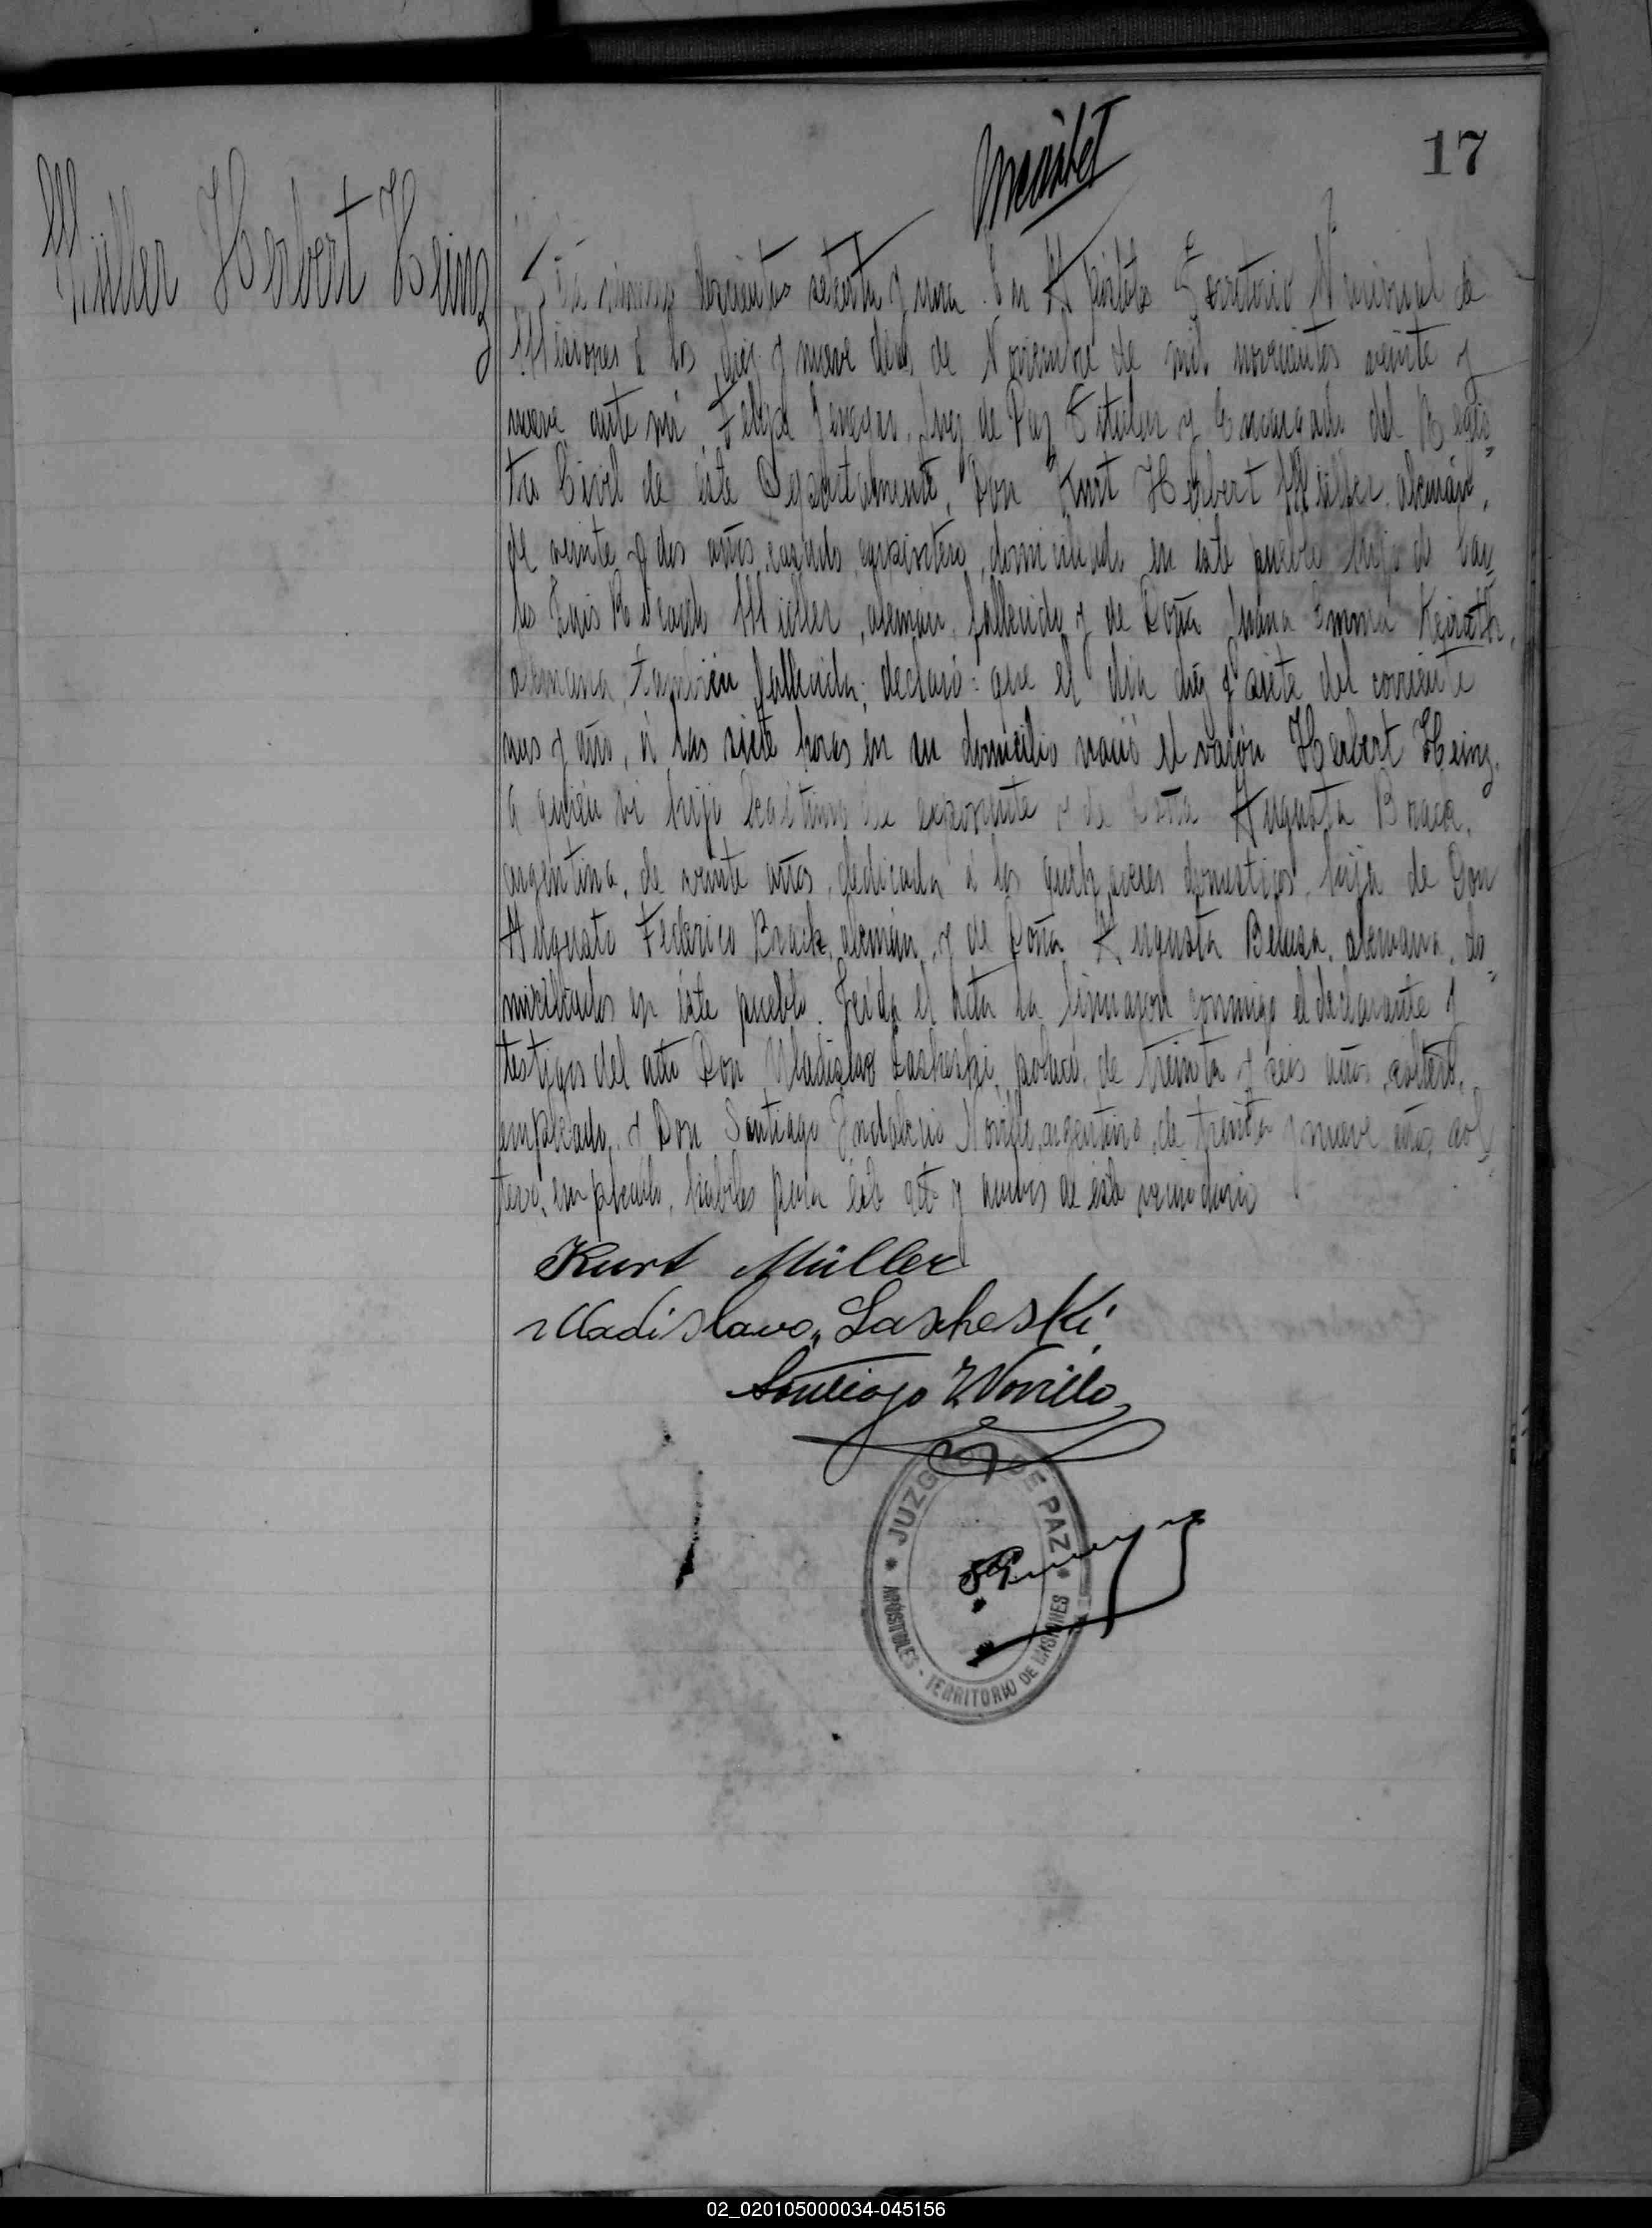 17
Müller Herbert Heinz
Acta número doscientos setenta y una. En Apóstoles Territorio Nacional de
Misiones á los diez y nueve días de Noviembre de mil novecientos veinte y
nueve ante mi, Felipe Juez de Paz Titular y Encargado del Regis-
tro Civil de éste Departamento, Don Kurt Herbert Müller, alemán,
de veinte y dos años, casado, carpintero, domiciliado en éste pueblo hijo de Car-
los Luis Müller, alemán, fallecido y de Doña Juana Emma
alemana, también fallecida; declaró: que el día diez y siete del corriente
mes y año, á las siete horas en su domicilio nació el varón Herbert Heinz,
a quién ví hijo legítimo del exponente y de Doña Augusta Brack,
argentina, de veinte años, dedicada á los quehaceres domesticos, hija de Don
Augusto Federico Brack, alemán, y de Doña Augusta Belusa, alemana, do-
miciliados en éste pueblo. Leída el acta la firmaron conmigo el declarante y
testigos del acto Don Uladislao Lasheski, polaco, de treinta y seis años, soltero,
empleado, y Don Santiago Indalecio argentino, de treinta y nueve años, sol-
tero, empleado, habiles para éste acto y ambos de éste vecindario
Kurt Müller
Uladislavo Lasheski
Santiago
JUZGADO DE PAZ
APÓSTOLES - TERRITORIO DE MISIONES
02_020105000034-045156